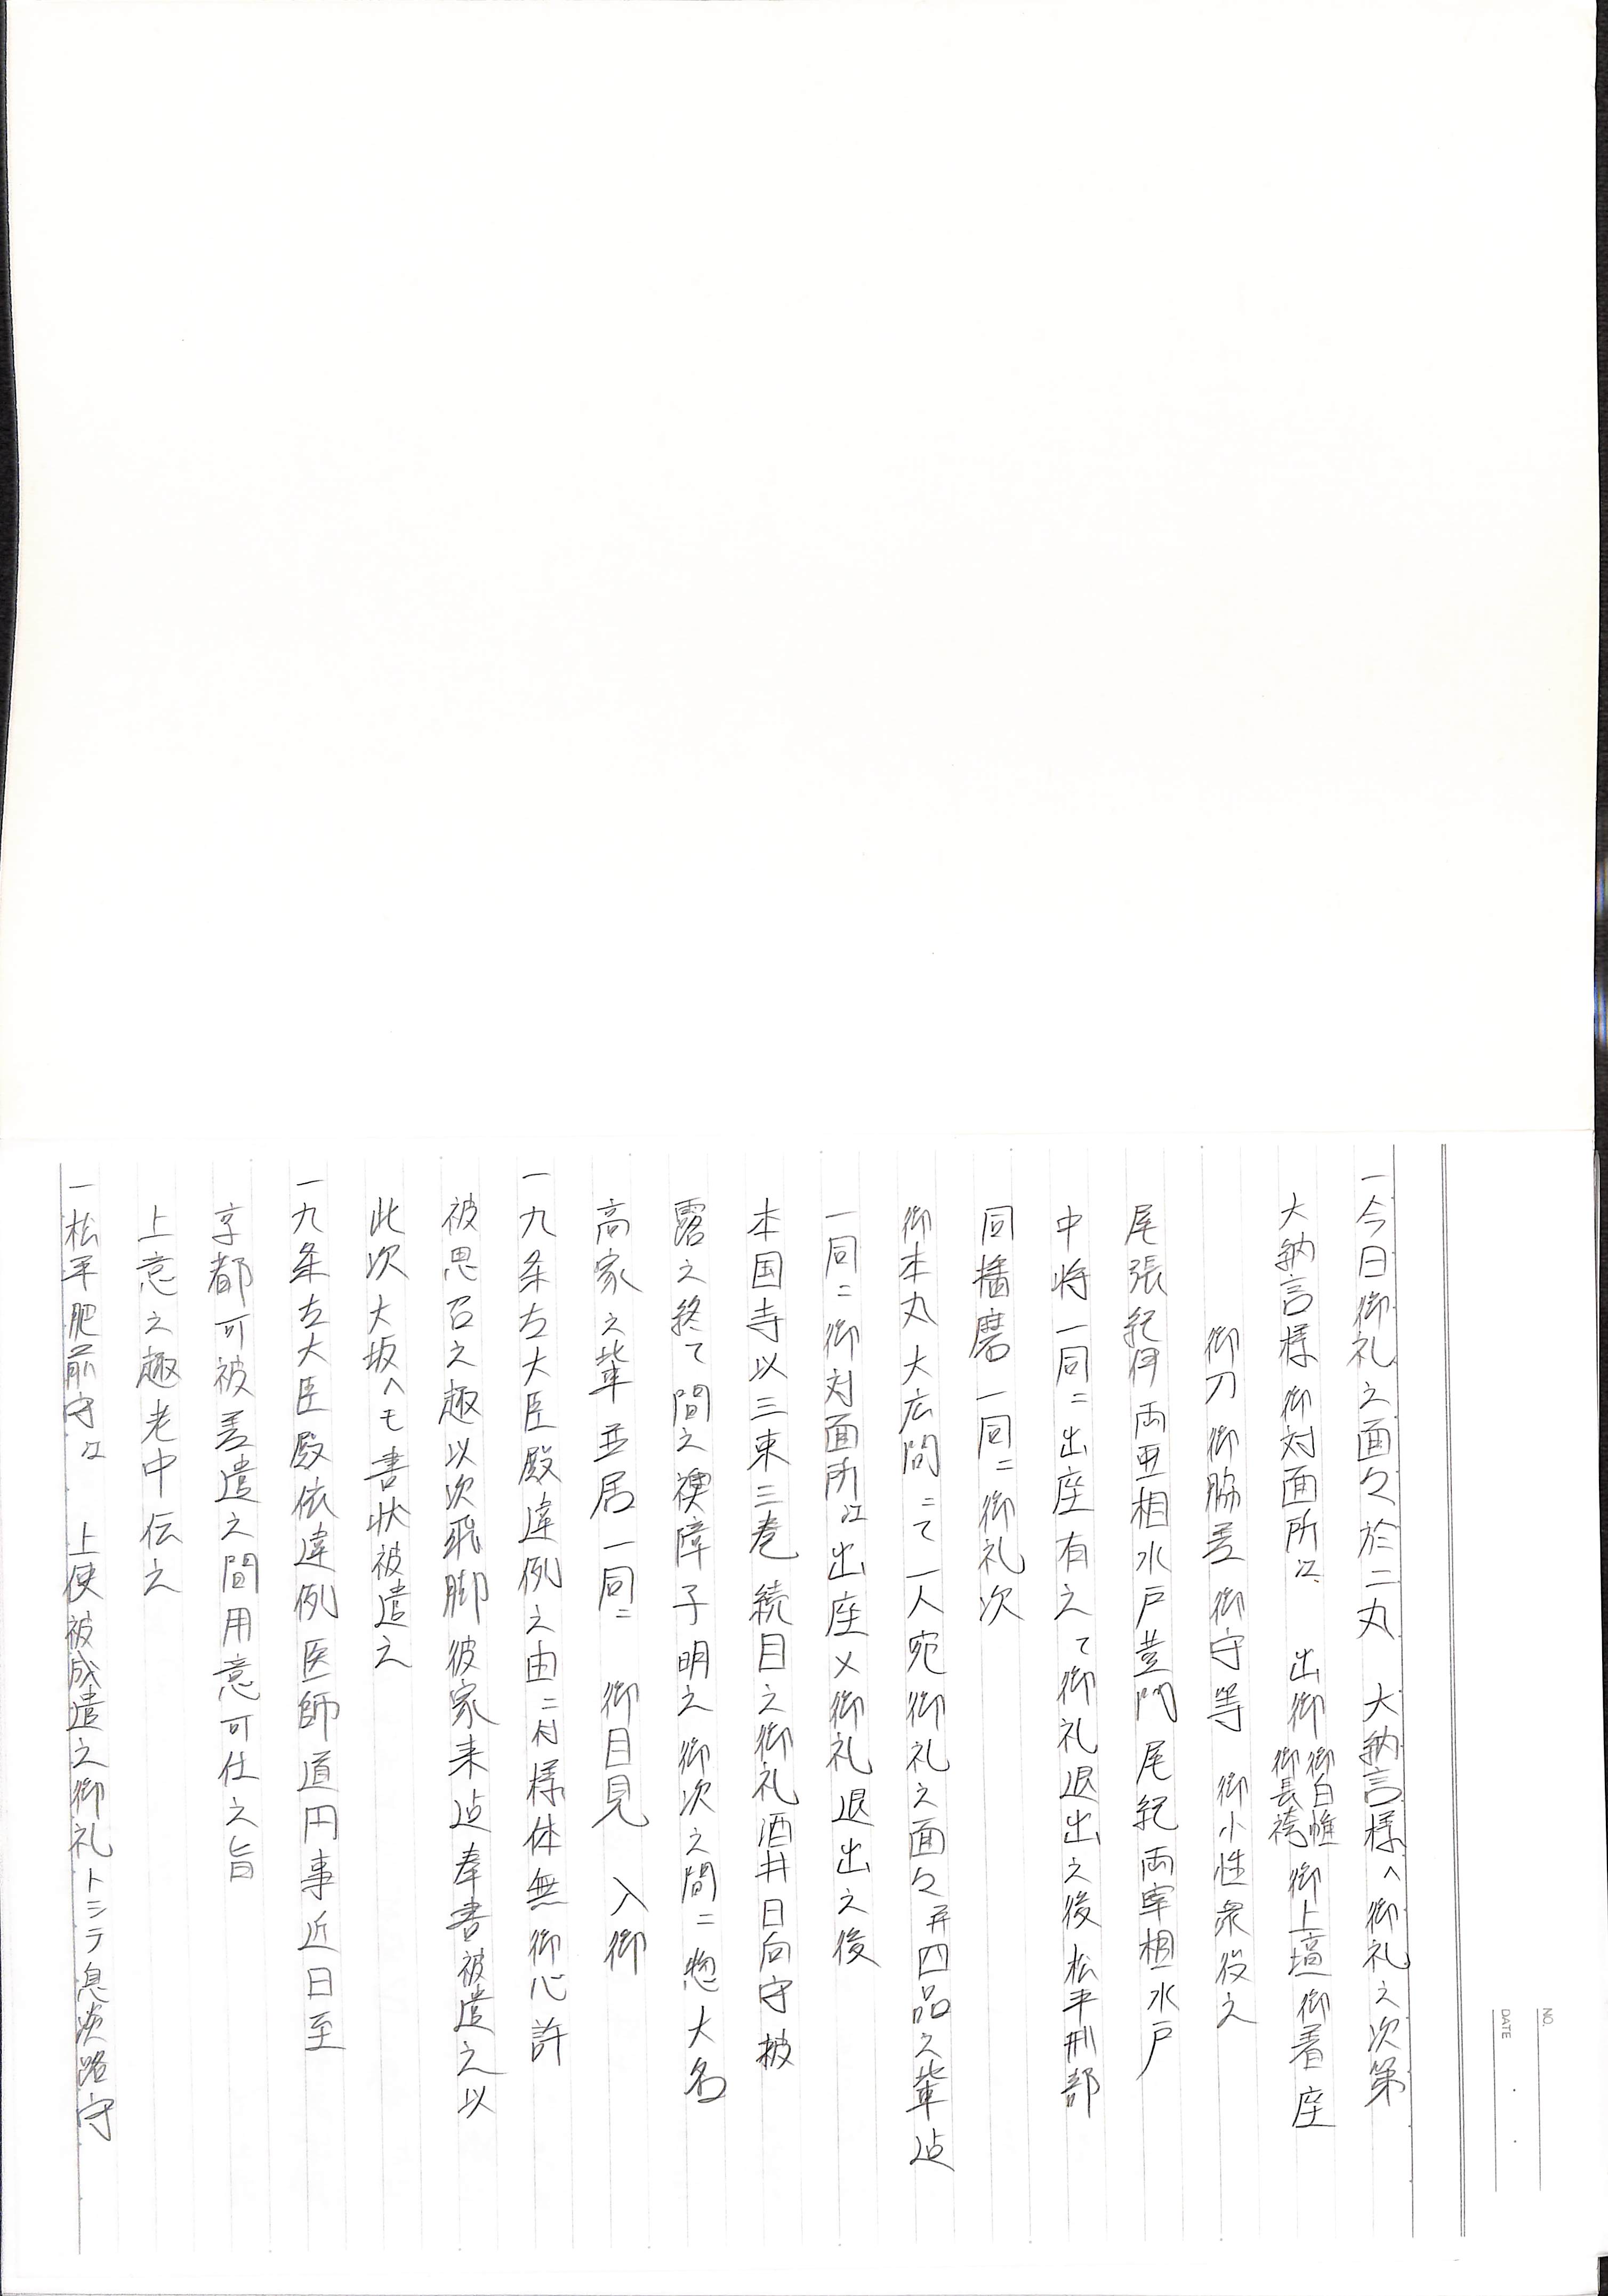 一今日御礼之面々於二丸　大納言様へ御礼之次第
大納言様御対面所江　出御御白帷御長袴御上壇御着座
御刀御脇差御守等　御小性衆役之
尾張紀伊両亜相水戸黄門尾紀両宰相水戸
中将一同ニ出座有之て御礼退出之後松平刑部
同播磨一同ニ御礼次
御本丸大広間ニて一人宛御礼之面々并四品之輩迄
一同ニ御対面所江出座〆御礼退出之後
本国寺以三束三巻続目之御礼酒井日向守披
露之終て間之襖障子明之御次之間ニ惣大名
高家之輩並居一同ニ　御目見　入御
一九条左大臣殿違例之由ニ付様体無御心許
被思召之趣以次飛脚彼家来迄奉書被遣之以
此次大坂へモ書状被遣之
一九条左大臣殿依違例医師道円事近日至
京都可被差遣之間用意可仕之旨
上意之趣老中伝之
一松平肥前守江　上使被成遣之御礼トシテ息淡路守
NO.
DATE